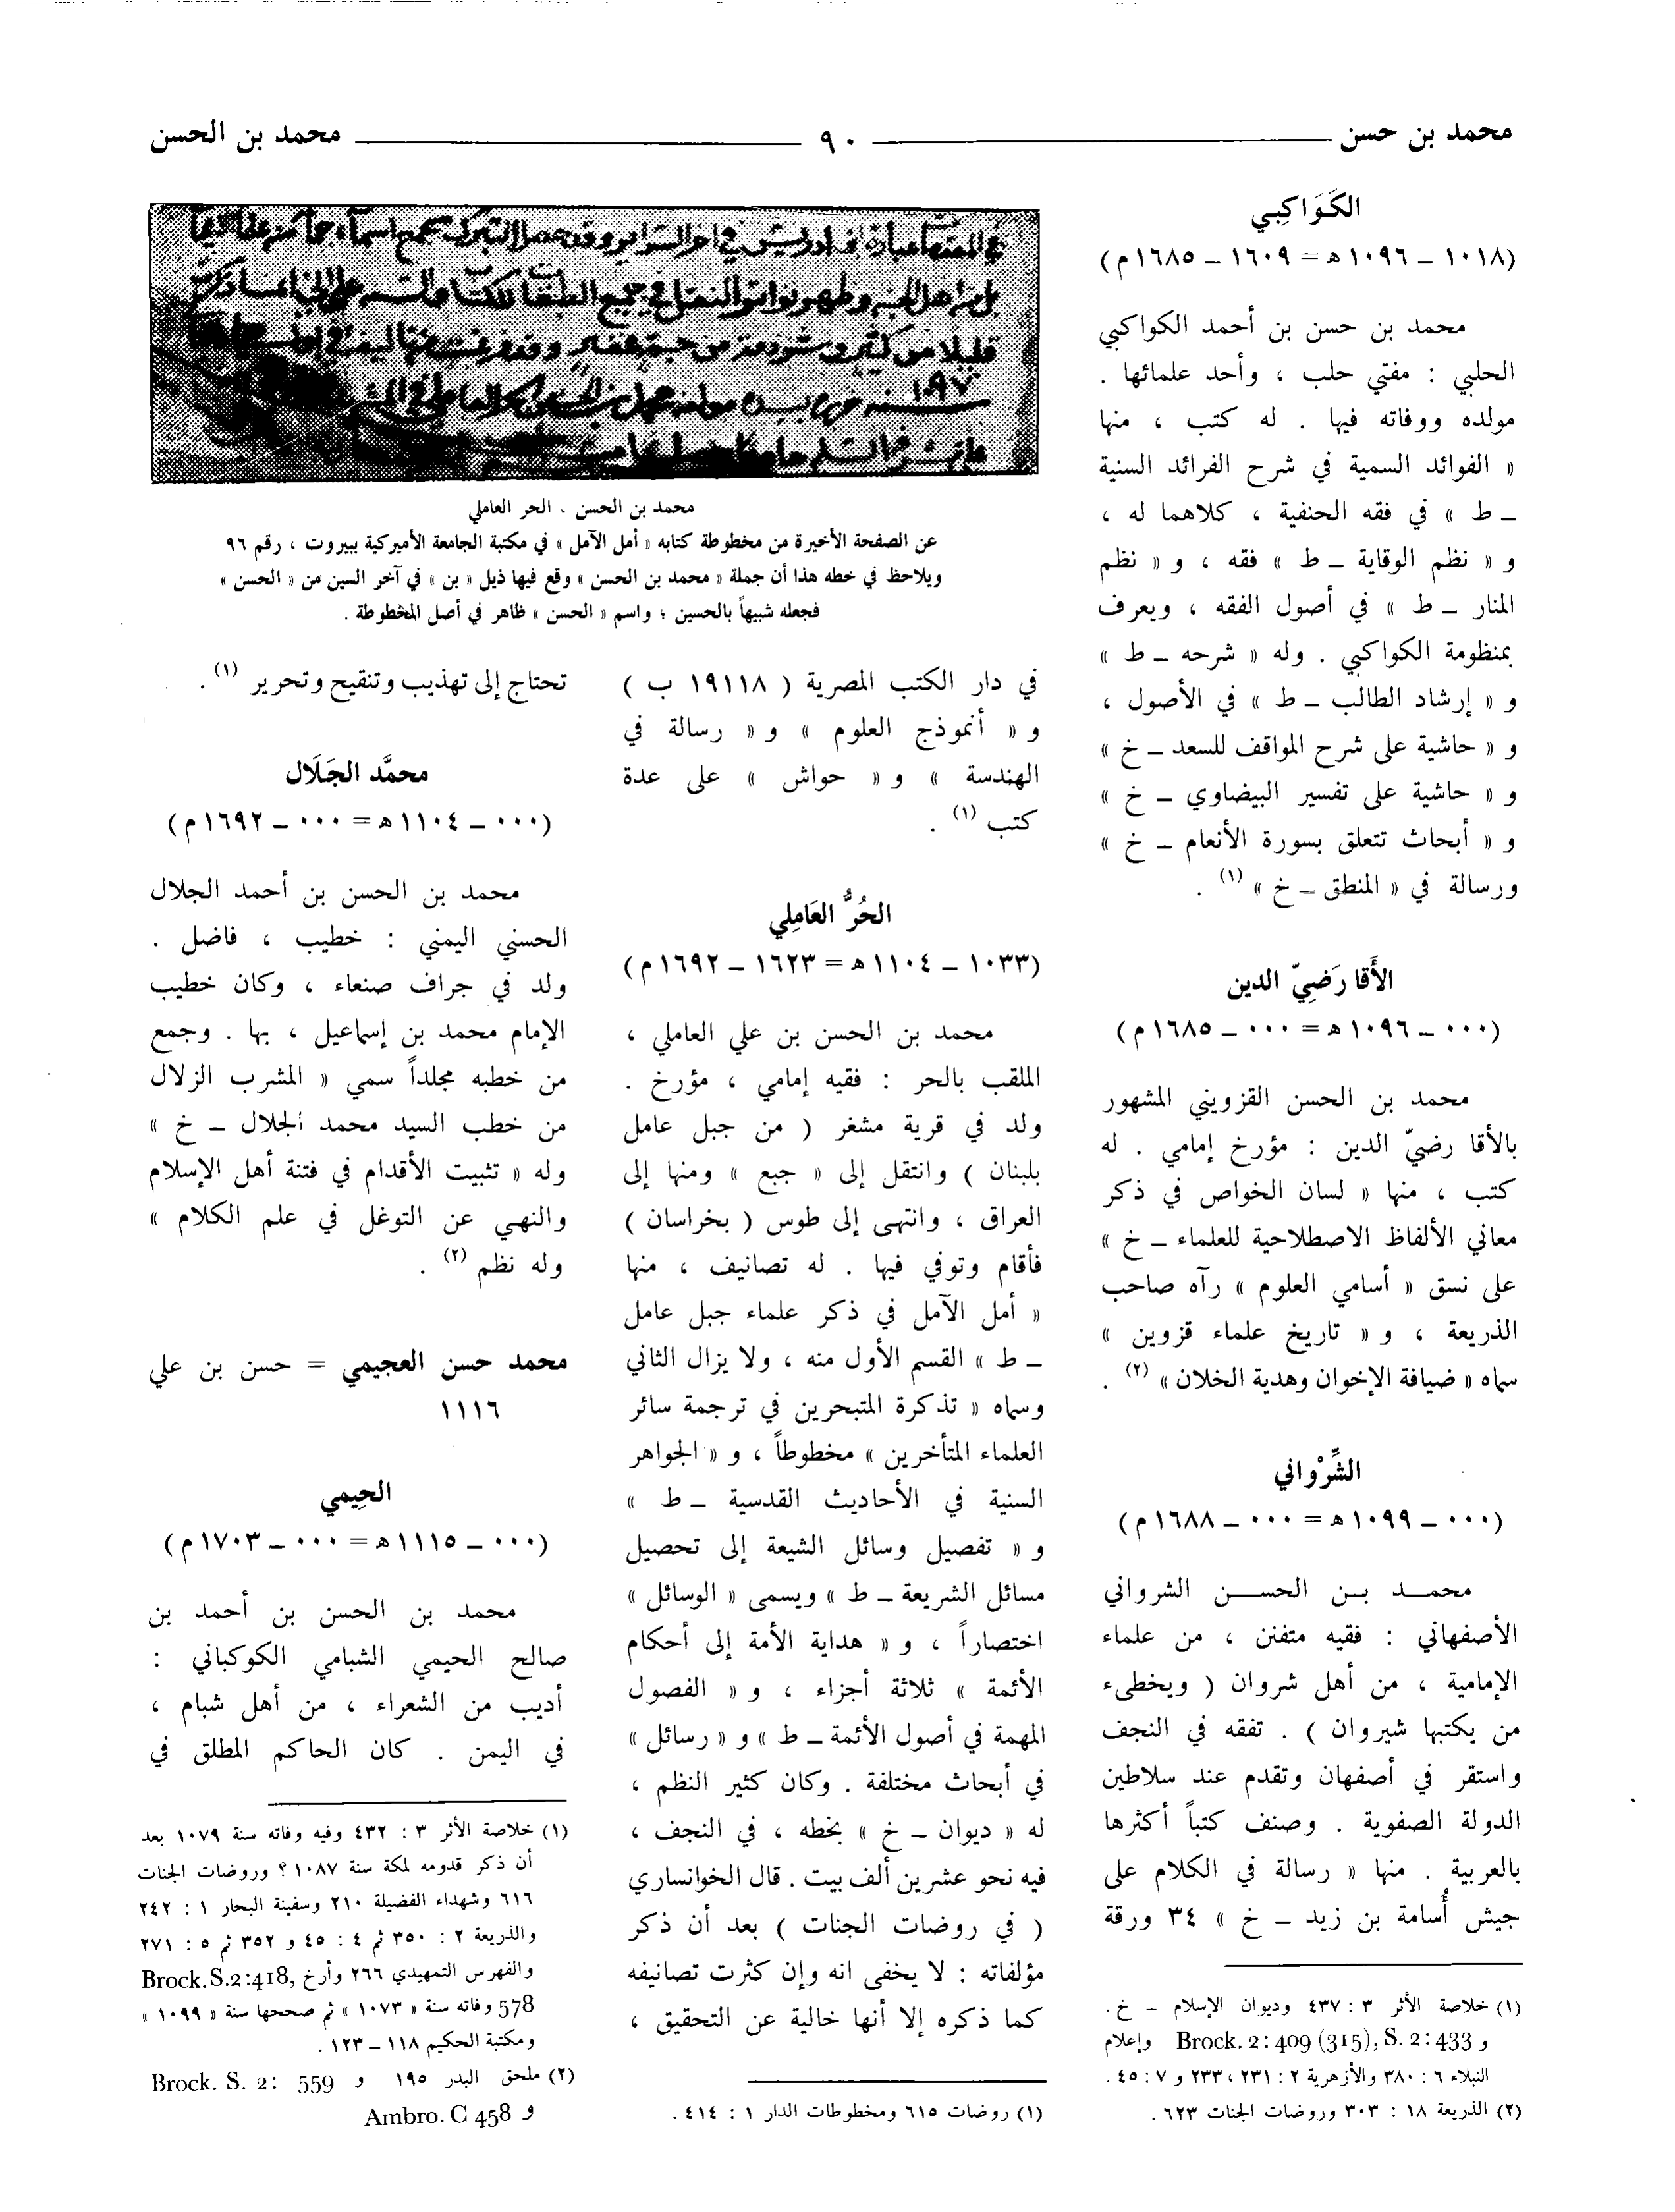 محمد بن حسن ٩٠ محمد بن الحسن
الكَوَاكِبي
(١٠١٨ – ١٠٩٦ ه = ١٦٠٩ – ١٦٨٥ م)
محمد بن حسن بن أحمد الكواكبي
الحلبي : مفتي حلب ، وأحد علمائها .
مولده ووفاته فيها . له كتب ، منها
« الفوائد السمية في شرح الفرائد السنية
– ط » في فقه الحنفية ، كلاهما له ،
و « نظم الوقاية – ط » فقه ، و « نظم
المنار – ط » في أصول الفقه ، ويعرف
بمنظومة الكواكبي . وله « شرحه – ط »
و « إرشاد الطالب – ط » في الأصول ،
و « حاشية على شرح المواقف للسعد – خ »
و « حاشية على تفسير البيضاوي – خ »
و « أبحاث تتعلق بسورة الأنعام – خ »
ورسالة في « المنطق – خ » (١) .
الأَقا رَضِيّ الدين
(٠٠٠ – ١٠٩٦ ه = ٠٠٠ – ١٦٨٥ م)
محمد بن الحسن القزويني المشهور
بالأقا رضيّ الدين : مؤرخ إمامي . له
كتب ، منها « لسان الخواص في ذكر
معاني الألفاظ الاصطلاحية للعلماء – خ »
على نسق « أسامي العلوم » رآه صاحب
الذريعة ، و « تاريخ علماء قزوين »
سماه « ضيافة الإخوان وهدية الخلان » (٢) .
الشِّرْواني
(٠٠٠ – ١٠٩٩ ه = ٠٠٠ – ١٦٨٨ م)
محمد بن الحسن الشرواني
الأصفهاني : فقيه متفنن ، من علماء
الإمامية ، من أهل شروان ( ويخطىء
من يكتبها شيروان ) . تفقه في النجف
واستقر في أصفهان وتقدم عند سلاطين
الدولة الصفوية . وصنف كتباً أكثرها
بالعربية . منها « رسالة في الكلام على
جيش أُسامة بن زيد – خ » ٣٤ ورقة
(١) خلاصة الأثر ٣ : ٤٣٧ وديوان الإسلام – خ .
و Brock. 2: 409 (315), S. 2: 433 وإعلام
النبلاء ٦ : ٣٨٠ والأزهرية ٢ : ٢٣١ ، ٢٣٣ و ٧ : ٤٥ .
(٢) الذريعة ١٨ : ٣٠٣ وروضات الجنات ٦٢٣ .
١٠٩٧
محمد بن الحسن ، الحر العاملي
عن الصفحة الأخيرة من مخطوطة كتابه « أمل الآمل » في مكتبة الجامعة الأميركية ببيروت ، رقم ٩٦
ويلاحظ في خطه هذا أن جملة « محمد بن الحسن » وقع فيها ذيل « بن » في آخر السين من « الحسن »
فجعله شبيهاً بالحسين ؛ واسم « الحسن » ظاهر في أصل المخطوطة .
في دار الكتب المصرية ( ١٩١١٨ ب )
و « أنموذج العلوم » و « رسالة في
الهندسة » و « حواش » على عدة
كتب (١) .
الحُرُّ العَامِلي
(١٠٣٣ – ١١٠٤ ه = ١٦٢٣ – ١٦٩٢ م)
محمد بن الحسن بن علي العاملي ،
الملقب بالحر : فقيه إمامي ، مؤرخ .
ولد في قرية مشغر ( من جبل عامل
بلبنان ) وانتقل إلى « جبع » ومنها إلى
العراق ، وانتهى إلى طوس ( بخراسان )
فأقام وتوفي فيها . له تصانيف ، منها
« أمل الآمل في ذكر علماء جبل عامل
– ط » القسم الأول منه ، ولا يزال الثاني
وسماه « تذكرة المتبحرين في ترجمة سائر
العلماء المتأخرين » مخطوطاً ، و « الجواهر
السنية في الأحاديث القدسية – ط »
و « تفصيل وسائل الشيعة إلى تحصيل
مسائل الشريعة – ط » ويسمى « الوسائل »
اختصاراً ، و « هداية الأمة إلى أحكام
الأئمة » ثلاثة أجزاء ، و « الفصول
المهمة في أصول الأئمة – ط » و « رسائل »
في أبحاث مختلفة . وكان كثير النظم ،
له « ديوان – خ » بخطه ، في النجف ،
فيه نحو عشرين ألف بيت . قال الخوانساري
( في روضات الجنات ) بعد أن ذكر
مؤلفاته : لا يخفى انه وإن كثرت تصانيفه
كما ذكره إلا أنها خالية عن التحقيق ،
(١) روضات ٦١٥ ومخطوطات الدار ١ : ٤١٤ .
تحتاج إلى تهذيب وتنقيح وتحرير (١) .
محمَّد الجَلَال
(٠٠٠ – ١١٠٤ ه = ٠٠٠ – ١٦٩٢ م)
محمد بن الحسن بن أحمد الجلال
الحسني اليمني : خطيب ، فاضل .
ولد في جراف صنعاء ، وكان خطيب
الإمام محمد بن إسماعيل ، بها . وجمع
من خطبه مجلداً سمي « المشرب الزلال
من خطب السيد محمد الجلال – خ »
وله « تثبيت الأقدام في فتنة أهل الإسلام
والنهي عن التوغل في علم الكلام »
وله نظم (٢) .
محمد حسن العجيمي = حسن بن علي
١١١٦
الحِيمي
(٠٠٠ – ١١١٥ ه = ٠٠٠ – ١٧٠٣ م)
محمد بن الحسن بن أحمد بن
صالح الحيمي الشبامي الكوكباني :
أديب من الشعراء ، من أهل شبام ،
في اليمن . كان الحاكم المطلق في
(١) خلاصة الأثر ٣ : ٤٣٢ وفيه وفاته سنة ١٠٧٩ بعد
أن ذكر قدومه لمكة سنة ١٠٨٧ ؟ وروضات الجنات
٦١٦ وشهداء الفضيلة ٢١٠ وسفينة البحار ١ : ٢٤٢
والذريعة ٢ : ٣٥٠ ثم ٤ : ٤٥ و ٣٥٢ ثم ٥ : ٢٧١
والفهرس التمهيدي ٢٦٦ وأرخ Brock. S. 2: 418,
578 وفاته سنة « ١٠٧٣ » ثم صححها سنة « ١٠٩٩ »
ومكتبة الحكيم ١١٨ – ١٢٣ .
(٢) ملحق البدر ١٩٥ و Brock. S. 2: 559
و Ambro. C 458